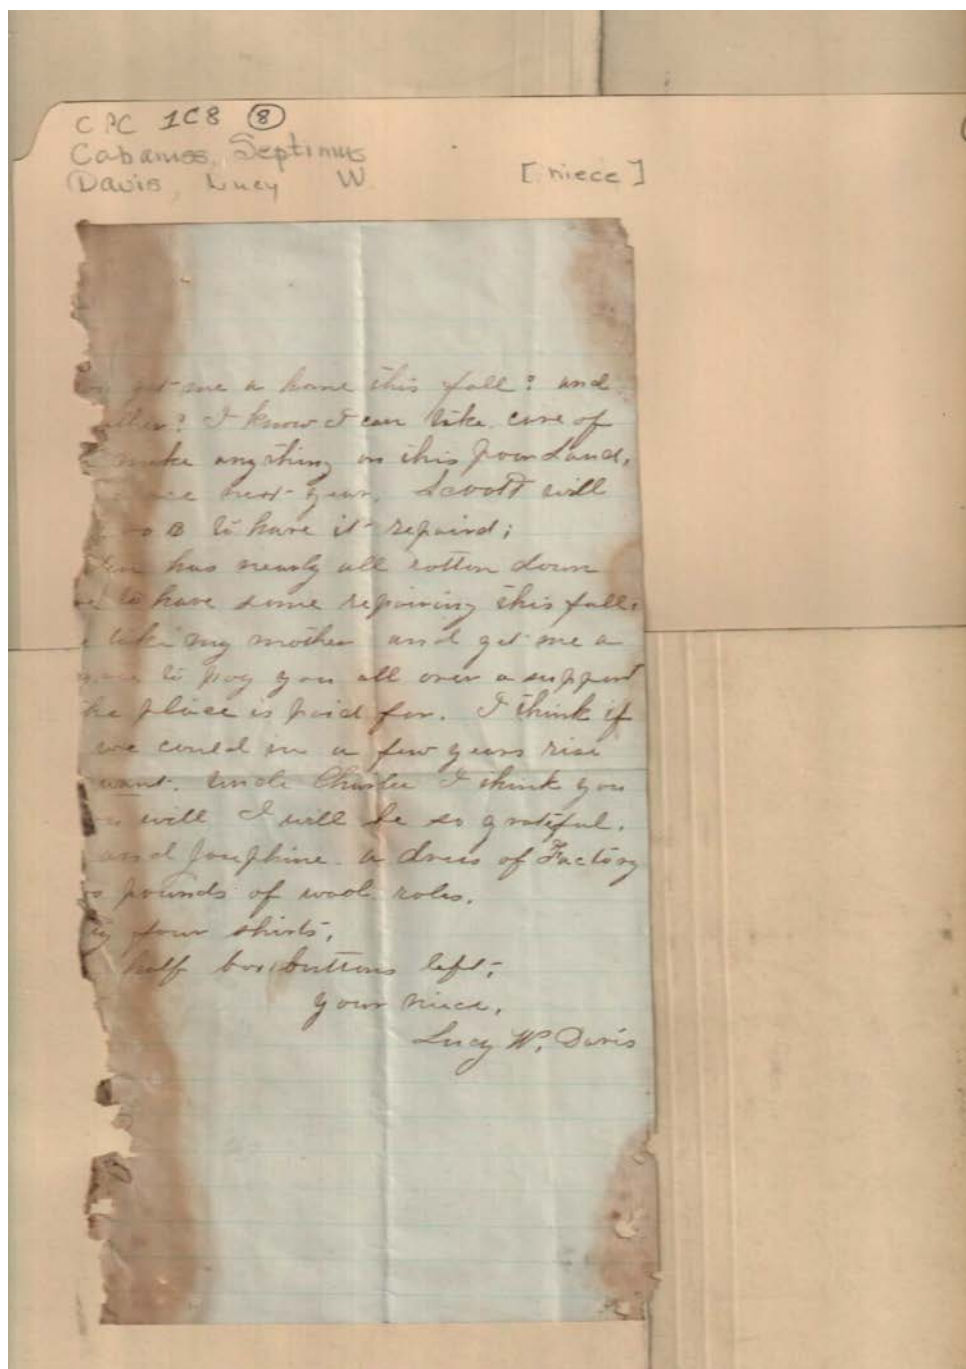 CPC 1C8 8
Cabaniss, Septimus
Davis, Lucy W. [niece]
get me a home this fall? and
I know I can take care of
make anything on this poor Land,
next year. Scoott will
to have it repaird;
has nearly all rotten down
to have some repairing this fall.
my mother and get me a
to pay you all over a support
place is paid for. I think if
we could in a few years rise
want. Uncle Charlee I think you
will I will be so grateful.
and Josephine a dress of Factory
pounds of wool roles.
four shirts,
half box buttons left,
your niece,
Lucy W. Davis